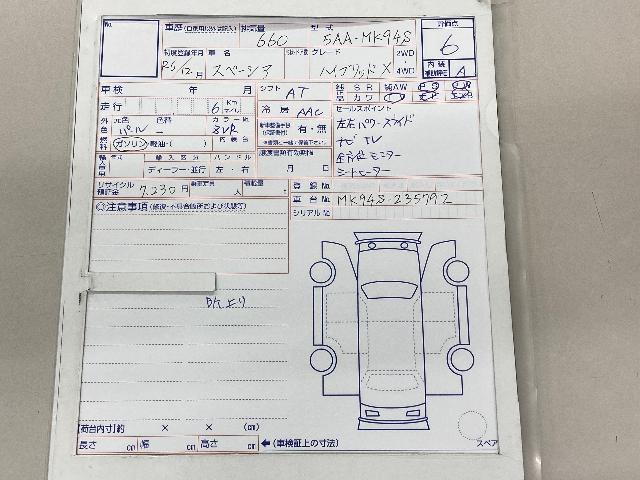 No.
車歴 排気量 型式
660 5AA-MK94S
評価点
6
初度登録年月 車名 グレード
R5/12月 スペーシア ハイブリッド X
2WD
4WD
内装
補助評価 A
車検 年 月
シフト AT
純 SR 純AW
カワ
走行 6 Km
マイル
冷房 AAC
セールスポイント
外色 元色 色替 カラーNo.
パール ー
左右パワースライド
有・無
ナビ TV
燃料 ガソリン・軽油・( )
全方位モニター
シートヒーター
輸入車 年式 輸入区分 ハンドル
ディーラー・並行 左・右
月 日
リサイクル預託金 7,230円 乗車定員 人 積載量
登録No.
車台No. MK94S-235792
シリアルNo.
◎注意事項(修復・不具合箇所および状態等)
【荷台内寸】約 × × (cm)
長さ cm 幅 cm 高さ cm
←(車検証上の寸法)
スペア